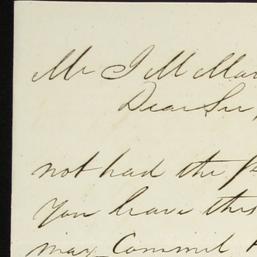 Mr J M Mar
Dear Sir,
not had the
you leave this
may Commit